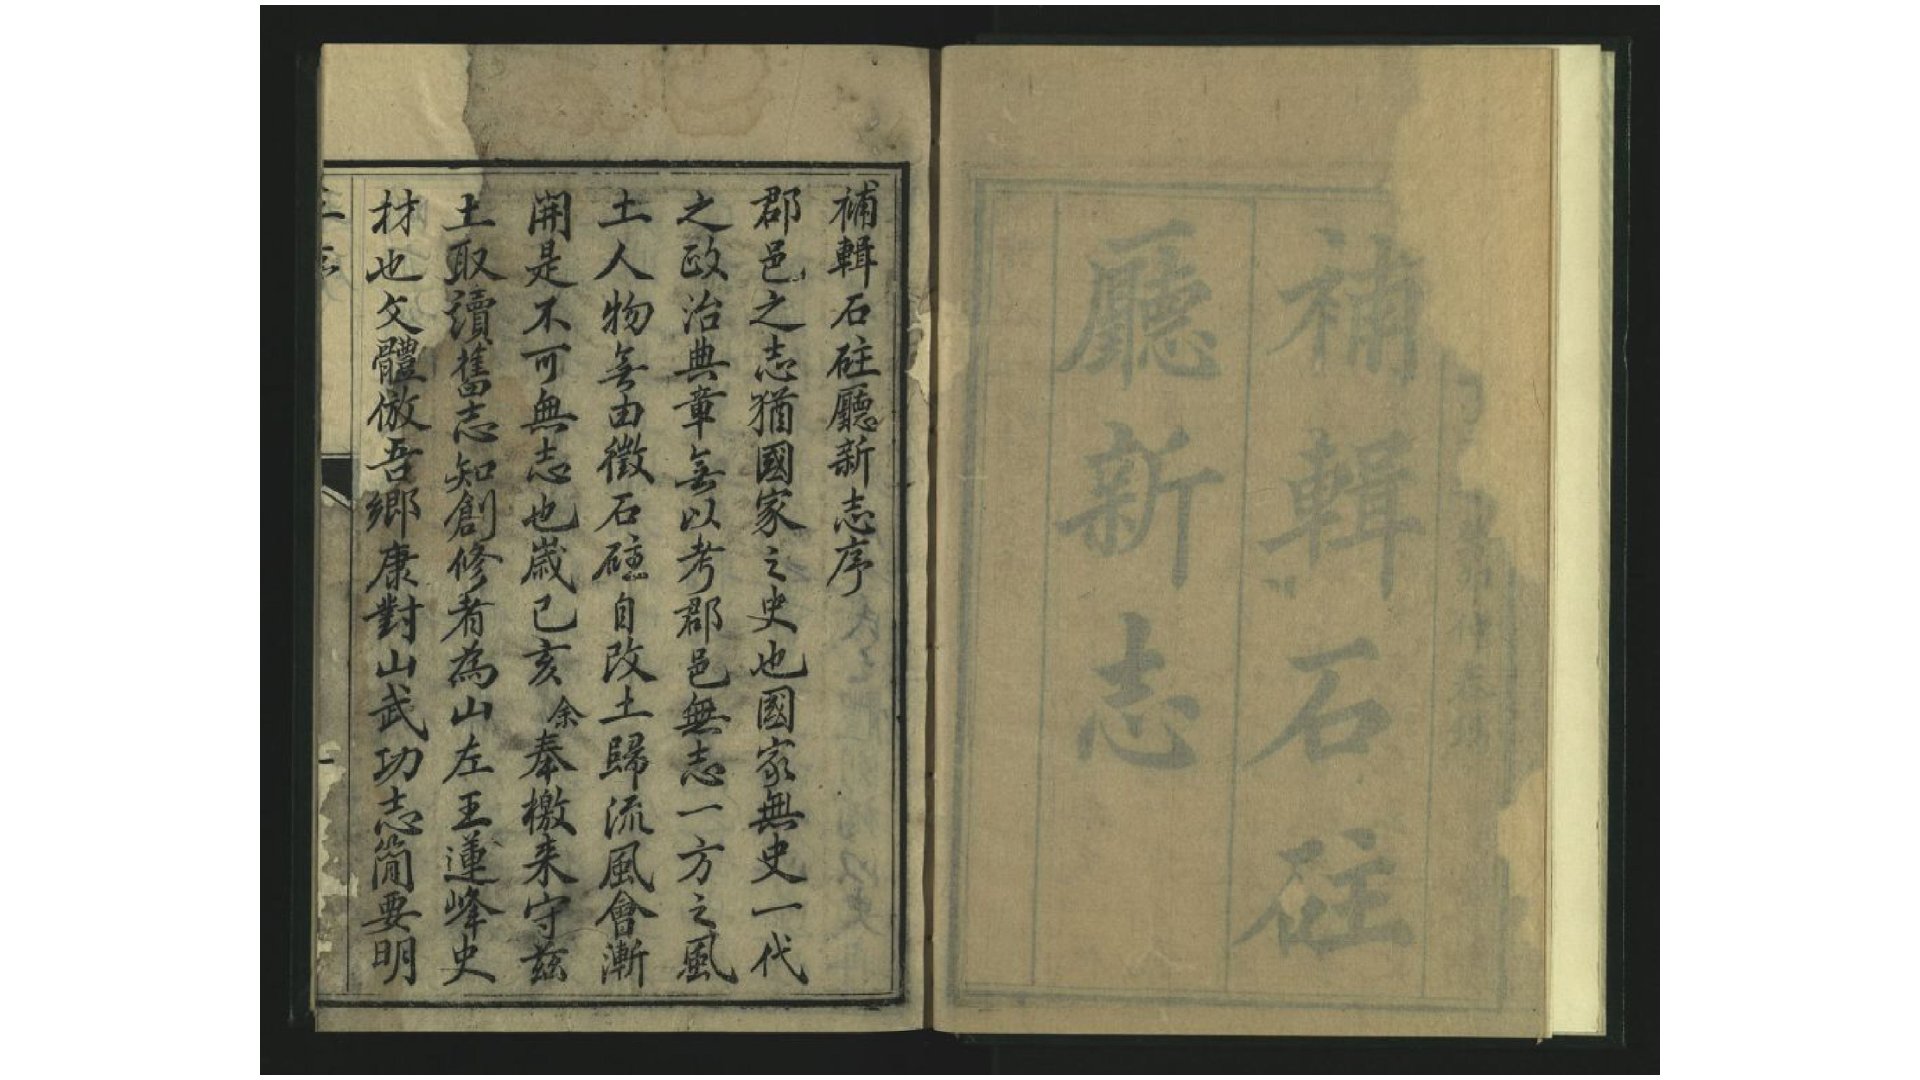 補輯石砫
廳新志
補輯石砫廳新志序
郡邑之志猶國家之史也國家無史一代
之政治典章無以考郡邑無志一方之風
土人物無由徵石砫自改土歸流風會漸
開是不可無志也歲己亥余奉檄来守茲
土取讀舊志知創修者為山左王蓮峰史
材也文體倣吾鄉康對山武功志簡要明